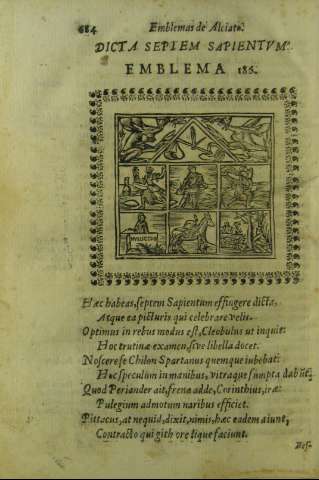 684
Emblemas de Alciato.
DICTA SEPTEM SAPIENTVM.
EMBLEMA 186.
MVLVCTIV
Hæc habeas, septem Sapientum effingere dicta,
Atque ea picturis qui celebrare velis.
Optimus in rebus modus est, Cleobulus ut inquit:
Hoc trutinæ examen, sive libella docet.
Noscere se Chilon Spartanus quemque iubebat:
Hoc speculum in manibus, vitraque sumpta dabūt.
Quod Periander ait, frena adde, Corinthius, iræ:
Pulegium admotum naribus efficiet.
Pittacus, at nequid, dixit, nimis, hæc eadem aiunt,
Contracto qui gith ore liquefaciunt.
Res-